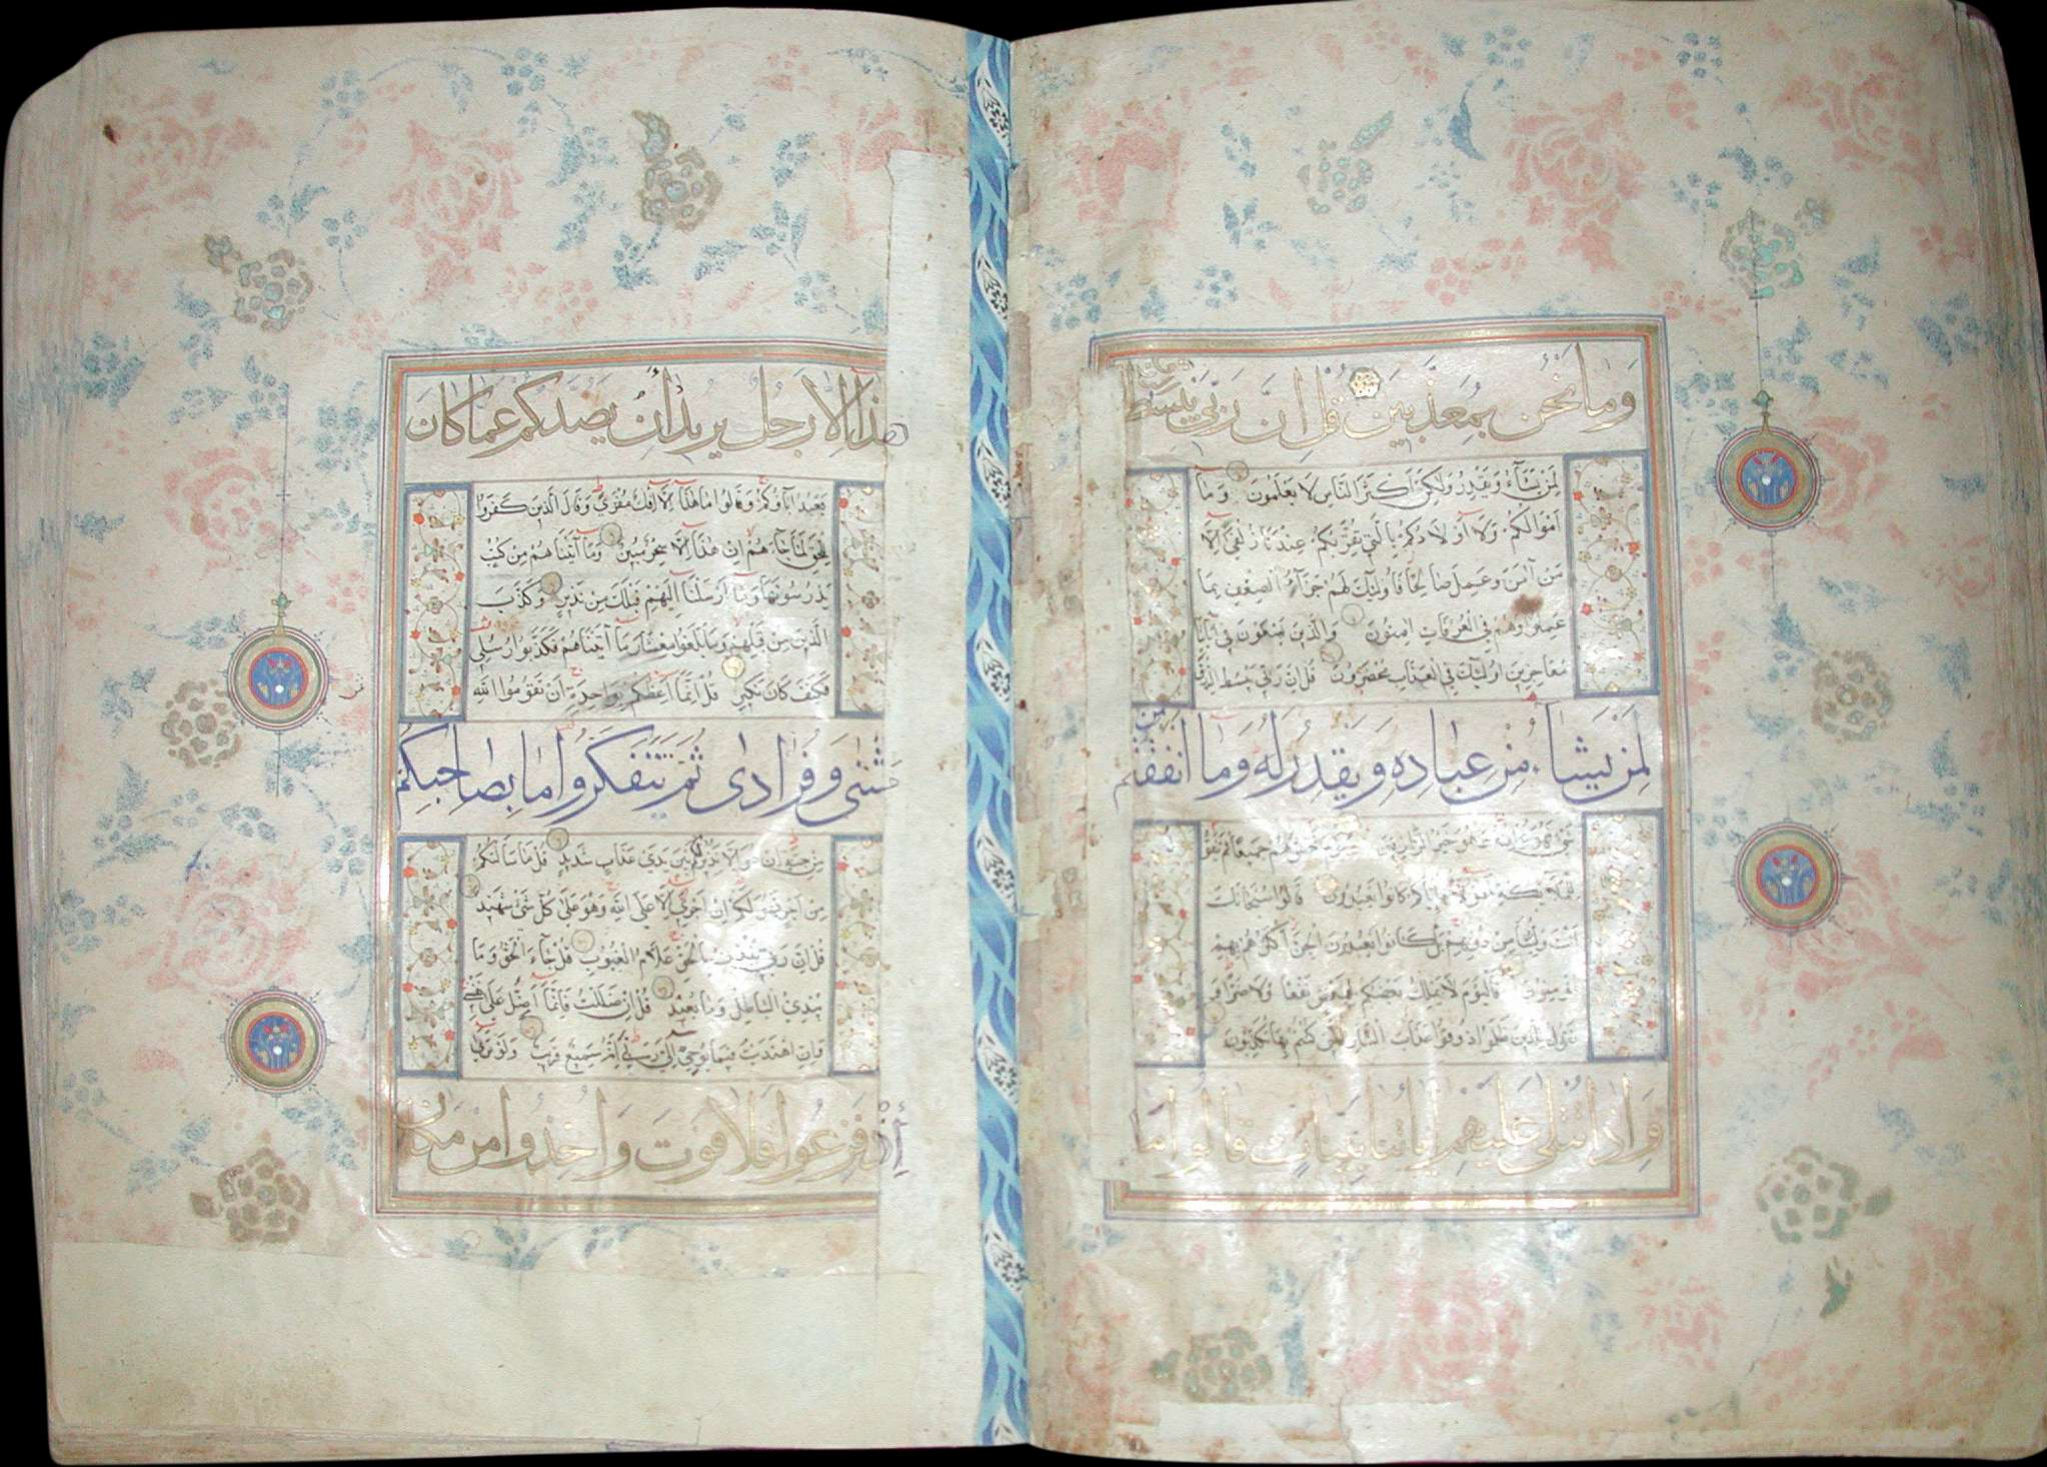 وما نحن بمعذبين قل ان ربي يبسط
لمن يشاء ويقدر ولكن اكثر الناس لا يعلمون وما
اموالكم ولا اولادكم بالتي تقربكم عندنا زلفى الا
من آمن وعمل صالحا فاولئك لهم جزآء الضعف بما
عملوا وهم في الغرفات امنون والذين يسعون في آياتنا
معاجزين اولئك في العذاب محضرون قل ان ربي يبسط الرزق
لمن يشاء من عباده ويقدر له وما انفقتم
من شئ فهو يخلفه وهو خير الرازقين ويوم يحشرهم جميعا ثم يقول
للملائكة اهؤلاء اياكم كانوا يعبدون قالوا سبحانك
انت ولينا من دونهم بل كانوا يعبدون الجن اكثرهم بهم
مؤمنون فاليوم لا يملك بعضكم لبعض نفعا ولا ضرا و
نقول للذين ظلموا ذوقوا عذاب النار التي كنتم بها تكذبون
واذا تتلى عليهم آياتنا بينات قالوا ما
هذا الا رجل يريد أن يصدكم عما كان
يعبد اباؤكم وقالوا ما هذا الا افك مفترى وقال الذين كفروا
للحق لما جاءهم ان هذا الا سحر مبين وما آتيناهم من كتب
يدرسونها وما ارسلنا اليهم قبلك من نذير وكذب
الذين من قبلهم وما بلغوا معشار ما آتيناهم فكذبوا رسلي
فكيف كان نكير قل انما اعظكم بواحدة ان تقوموا لله
مثنى وفرادى ثم تتفكروا ما بصاحبكم
من جنة ان هو الا نذير لكم بين يدي عذاب شديد قل ما سالتكم
من اجر فهو لكم ان اجري الا على الله وهو على كل شئ شهيد
قل ان ربي يقذف بالحق علام الغيوب قل جاء الحق وما
يبدئ الباطل وما يعيد قل ان ضللت فانما أضل على نفسي
وان اهتديت فبما يوحي الي ربي انه سميع قريب ولو ترى
إذ فزعوا فلا فوت واخذوا من مكان